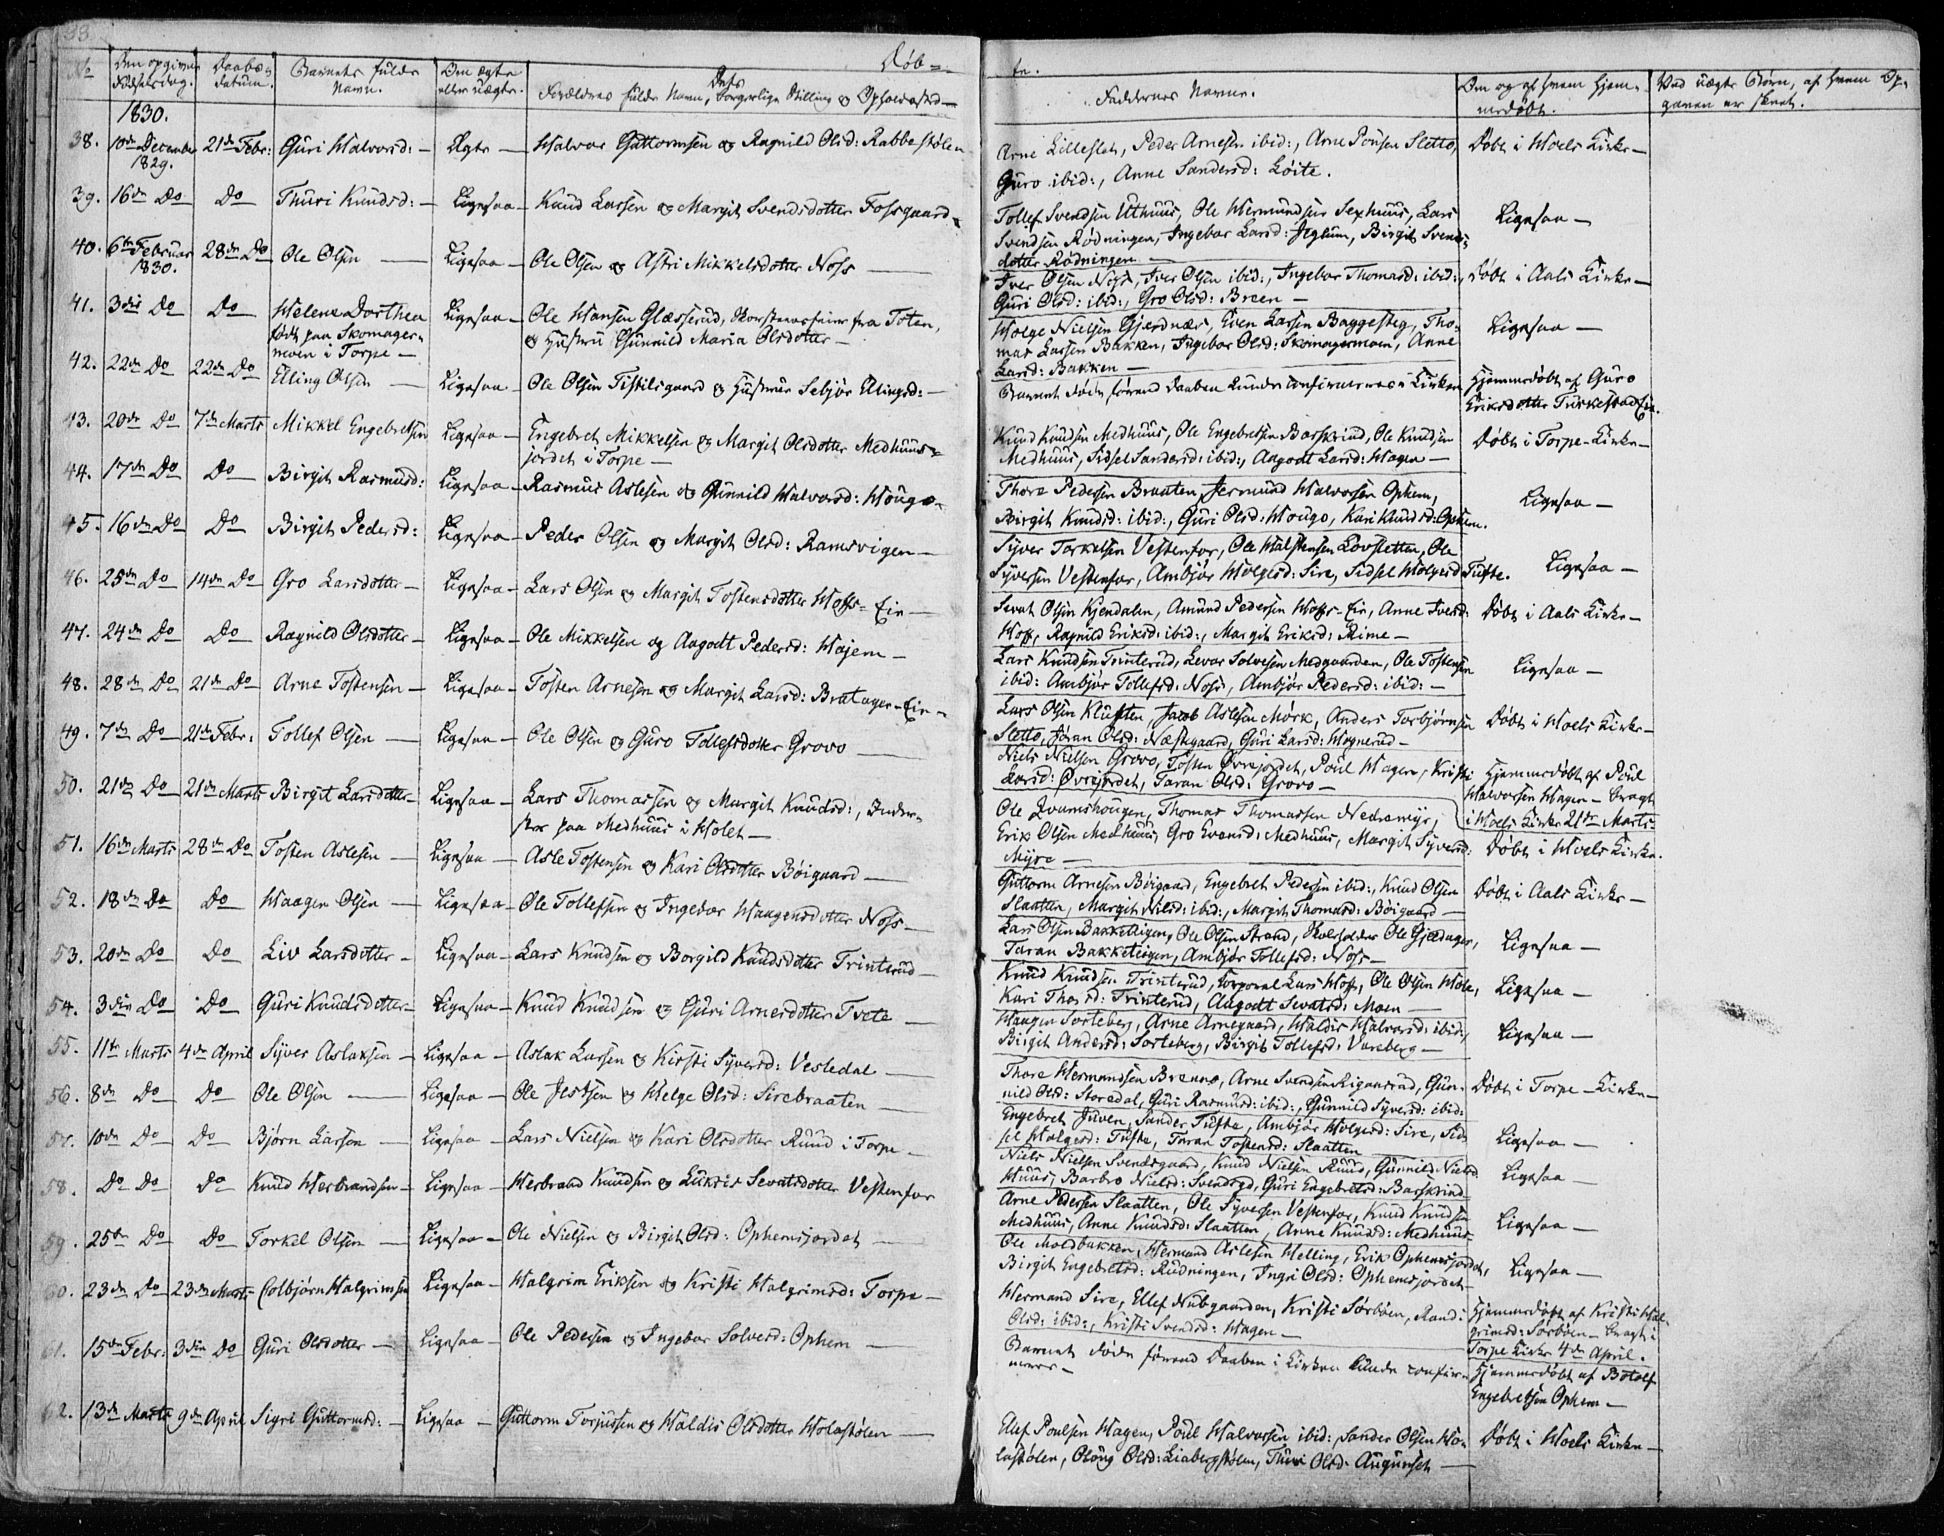 38
Døb=
te.
No
Den opgivne Fødselsdag.
Daabs- datum.
Barnets fulde Navn.
Om ægte eller uægte.
Forældres fulde Navn, Dets borgerlige Stilling og Opholdssted
Faddernes Navne.
Om og af hvem hjem- medøbt.
Ved uægte Børn, af hvem Op- gaven er skeet.
1830.
38. 10de December 1829. 21de Febr: Guri Halvorsd: — Ægte — Halvor Guttormsen og Ragnild Olsd: Rabbestølen
Arne Lilleslet, Peder Arnesen ibid:, Arne Pousen Sletto,
Guro ibid:, Anne Sandersd: Løite.
Døbt i Hoels Kirke —
39. 16de Do Do Thuri Knudsd: — Ligesaa — Knud Larsen og Margit Svendsdotter Fossgaard
Tollef Svendsen Uthuus, Ole Hermundsen Sexhuus, Lars
Svendsen Rødningen, Ingebor Larsd: Jeglum, Birgit Svends-
dotter Rødningen —
Ligesaa —
40. 6te Februar 1830. 28de Do Ole Olsen — Ligesaa — Ole Olsen og Astri Mikkelsdotter Noss —
Iver Olsen Noss, Iver Olsen ibid:, Ingebor Thomasd: ibid:,
Guri Olsd: ibid:, Gro Olsd: Breen —
Døbt i Aals Kirke —
41. 3die Do Do Helene Dorthea
født paa Skomager-
moen i Torpe —
Ligesaa — Ole Hansen Glæsserud, Skorsteensfeier fra Toten,
og Hustru Gunnild Maria Olsdotter —
Holge Nielsen Gjerdnæs, Even Larsen Baggesteg, Tho-
mas Larsen Bakken, Ingebor Olsd: Skomagermoen, Anne
Larsd: Bakken —
Ligesaa —
42. 22de Do 22de Do Elling Olsen — Ligesaa — Ole Olsen Tistilsgaard og Hustrue Sebjør Ellingsd: —
Barnet døde, førend Daaben kunde confirmeres i Kirken
Hjemmedøbt af Guro
Eriksdotter Turkestad Eie.
43. 20de Do 7de Marts Mikkel Engebretsen Ligesaa — Engebret Mikkelsen og Margit Olsdotter Medhuus-
jordet i Torpe —
Knud Knudsen Medhuus, Ole Engebretsen Barskrud, Ole Knudsen
Medhuus, Sidsel Sandersd: ibid:, Aagodt Larsd: Hagen —
Døbt i Torpe-Kirke —
44. 17de Do Do Birgit Rasmusd: Ligesaa — Rasmus Aslesen og Gunnild Halvorsd: Hougo —
Thore Pedersen Braaten, Jermund Halvorsen Ophem,
Birgit Knudsd: ibid:, Guri Olsd: Hougo, Kari Knudsd: Ophem.
Ligesaa —
45. 16de Do Do Birgit Pedersd: Ligesaa — Peder Olsen og Margit Olsd: Ramsvigen —
Syver Torkelsen Vestenfor, Ole Halstensen Lovsletten, Ole
Syversen Vestenfor, Ambjør Holgersd: Sire, Sidsel Holgersd: Tufte.
Ligesaa —
46. 25de Do 14de Do Gro Larsdotter — Ligesaa — Lars Olsen og Margit Tostensdotter Hoffs-Eie —
Sevat Olsen Kjendalen, Amund Pedersen Hoffs-Eie, Anne Iversd:
Hoff, Ragnild Eriksd: ibid:, Margit Eriksd: Rime —
Døbt i Aals Kirke —
47. 24de Do Do Ragnild Olsdotter — Ligesaa — Ole Mikkelsen og Aagodt Pedersd: Hajem —
Lars Knudsen Trinterud, Levor Solvesen Medgaarden, Ole Tostensen
ibid: Ambjør Tollefsd: Noss, Ambjør Pedersd: ibid: —
Ligesaa —
48. 28de Do 21de Do Arne Tostensen — Ligesaa — Tosten Arnesen og Margit Larsd: Bratager-Eie —
Lars Olsen Kluften, Jacob Aslesen Mørk, Anders Torbjørnsen
Sletto, Jøran Olsd: Næstegaard, Guri Larsd: Hognerud —
Døbt i Hoels Kirke —
49. 7de Do 21de Febr: Tollef Olsen — Ligesaa — Ole Olsen og Guro Tollefsdotter Grovo —
Niels Nielsen Grovo, Tosten Øvrejordet, Poul Hagen, Kristi
Larsd: Øvrejordet, Taran Olsd: Grovo —
50. 21de Do 21de Marts Birgit Larsdotter — Ligesaa — Lars Thomassen og Margit Knudsd:, Inder-
ster paa Medhuus i Holet —
Ole Qvamshougen, Thomas Thomassen Nedremyr,
Erik Olsen Medhuus, Gro Evensd: Medhuus, Margit Syversd:
Myre —
Hjemmedøbt af Poul
Halvorsen Hagen — bragt
i Hoels Kirke 21de Marts
Døbt i Hoels Kirke.
51. 16de Marts 28de Do Tosten Aslesen — Ligesaa — Asle Tostensen og Kari Olsdotter Bøigaard —
Guttorm Arnesen Bøigaard, Engebret Pedersen ibid:, Knud Olsen
Slaatten, Margit Nilsd: ibid:, Margit Thomasd: Bøigaard —
Døbt i Aals Kirke —
52. 18de Do Do Haagen Olsen — Ligesaa — Ole Tollefsen og Ingebor Haagensdotter Noss —
Lars Olsen Bakketeigen, Ole Olsen Strand, Skoleholder Ole Gjeldager,
Taran Bakketeigen, Ambjør Tollefsd: Noss —
Ligesaa —
53. 20de Do Do Liv Larsdotter — Ligesaa — Lars Knudsen og Borgild Knudsdotter Trinterud —
Knud Knudsen Trinterud, Corporal Lars Hoff, Ole Olsen Hole,
Kari Thorsd: Trinterud, Aagodt Sevatsd: Moen —
Ligesaa —
54. 3die Do Do Guri Knudsdotter — Ligesaa — Knud Knudsen og Guri Arnesdotter Tvete —
Haagen Sorteberg, Arne Arnegaard, Haldis Halvorsd: ibid:,
Birgit Andersd: Sorteberg, Birgit Tollefsd: Vareberg —
Ligesaa —
55. 11te Marts 4de April Syver Aslaksen — Ligesaa — Aslak Larsen og Kirsti Syversd: Vesledal —
Thore Hermandsen Brenno, Arne Svendsen Rigaarud, Gun-
nild Olsd: Storedal, Guri Rasmusd: ibid:, Gunnild Syversd: ibid:
Døbt i Torpe-Kirke —
56. 8de Do Do Ole Olsen — Ligesaa — Ole Jestsen og Helge Olsd: Sirebraaten —
Engebret Juven, Sander Tufte, Ambjør Holgersd: Sire, Sid-
sel Holgersd: Tufte, Taran Tostensd: Slaatten
Ligesaa —
57. 10de Do Do Bjørn Larsen — Ligesaa — Lars Nielsen og Kari Olsdotter Ruud i Torpe —
Niels Nielsen Svendsgaard, Knud Nielsen Ruud, Gunnild Nielsd:
Huus, Barbro Nielsd: Svendsgd, Guri Engebretsd: Barskrud
Ligesaa —
58. Do Do Do Knud Herbrandsen — Ligesaa — Herbrand Knudsen og Lukris Sevatsdotter Vestenfor
Arne Pedersen Slaatten, Ole Syversen Vestenfor, Knud Knudsen
Medhuus, Anne Knudsd: Slaatten, Anne Knudsd: Medhuus
Ligesaa —
59. 25de Do Do Torkel Olsen — Ligesaa — Ole Nielsen og Birgit Olsd: Ophemsjordet —
Ole Moldbakken, Hermand Aslesen Helling, Erik Ophemsjordet,
Birgit Engebretsd: Rudningen, Ingri Olsd: Ophemsjordet
Ligesaa —
60. 23de Do 23de Marts Colbjørn Halgrimsen Ligesaa — Halgrim Eriksen og Kristi Halgrimsd: Torpe —
Hermand Sire, Ellef Nubgaarden, Kristi Sørbøen, Randi
Olsd: ibid:, Kristi Svendsd: Hagen —
Hjemmedøbt af Kristi Hal-
grimsd: Sørbøen — bragt i
Torpe Kirke 4de April.
61. 15de Febr: 3die Do Guri Olsdotter — Ligesaa — Ole Pedersen og Ingebor Solvesd: Ophem —
Barnet døde førend Daaben i Kirken kunde confir-
meres —
Hjemmedøbt af Botolf
Engebretsen Ophem —
62. 13de Marts 9de April Sigri Guttormsd: — Ligesaa — Guttorm Torjussen og Haldis Olsdotter Holastølen —
Ellef Poulsen Hagen, Poul Halvorsen ibid:, Sander Olsen Ho-
lastølen, Oloug Olsd: Liabergstølen, Thuri Olsd: Augunset —
Døbt i Hoels Kirke —